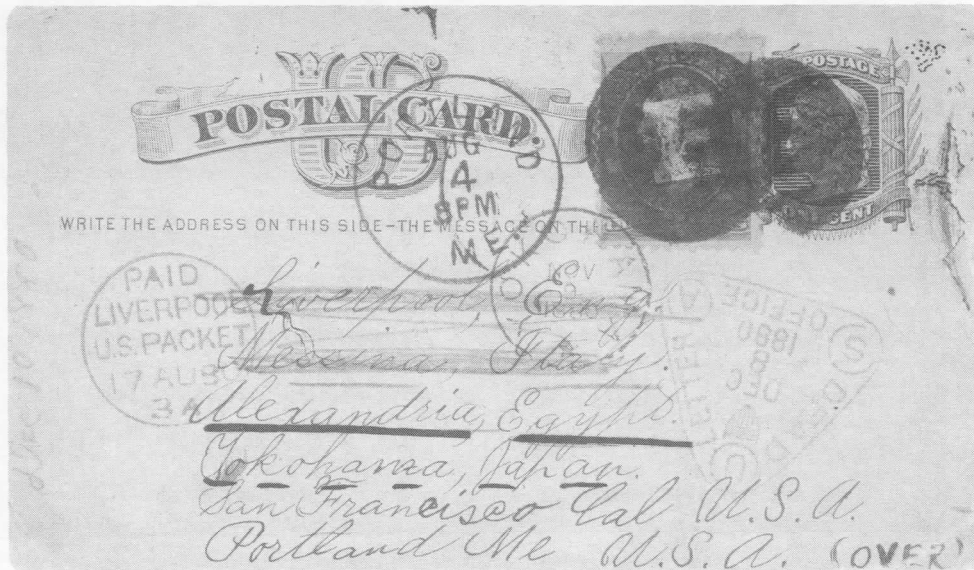 US
POSTAL CARD.
POSTAGE
ONE CENT
WRITE THE ADDRESS ON THIS SIDE-THE MESSAGE ON THE
PORTLAND
AUG
4
8PM
ME.
NOV
1880
PAID
LIVERPOOL
U.S. PACKET
17 AU 80
3A
DEAD
LETTER
OFFICE
DEC
8
1880
Liverpool, Eng.
Messina, Italy.
Alexandria, Egypt.
Yokohama, Japan.
San Francisco Cal U.S.A.
Portland Me U.S.A. (OVER)